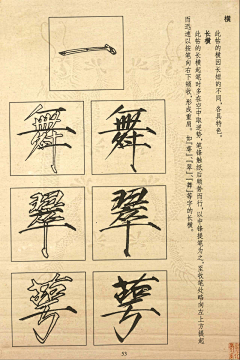 横
此帖的横因长短的不同，各具特色。
长横
此帖的长横起笔时多在空中取逆势，笔锋触纸后顺势而行，以中锋提笔为之，至收笔处略向左上方提起
而迅速以按笔向右下领收，形成重肩。如『舞』、『翠』、『萼』等字的长横。
一
舞
舞
翠
翠
萼
萼
53